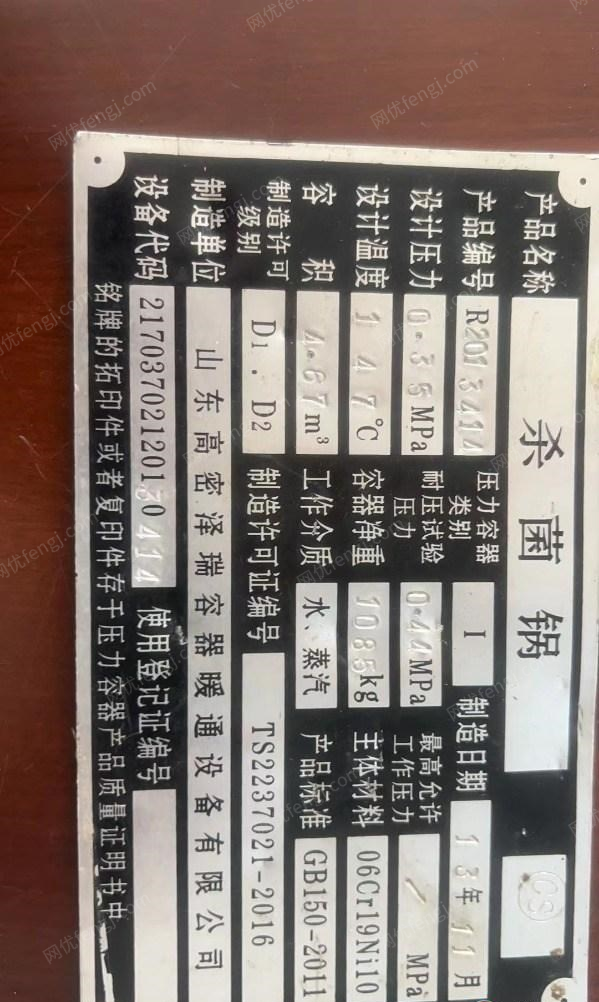 产品名称 杀菌锅 CS
产品编号 R2013414 压力容器类别 I 制造日期 13年11月
设计压力 0.35MPa 耐压试验压力 0.44MPa 最高允许工作压力 / MPa
设计温度 147℃ 容器净重 1085kg 主体材料 06Cr19Ni10
容积 4.67m³ 工作介质 水、蒸汽 产品标准 GB150-2011
制造许可级别 D1.D2 制造许可证编号 TS2237021-2016
制造单位 山东高密泽瑞容器暖通设备有限公司
设备代码 21703702120130414 使用登记证编号
铭牌的拓印件或者复印件存于压力容器产品质量证明书中
网优fengj.com